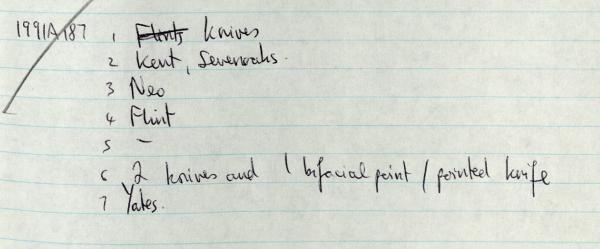 1991A187 1 Flints knives
2 Kent, Sevenoaks.
3 Neo
4 Flint
5 –
6 2 knives and 1 bifacial point / pointed knife
7 Yates.